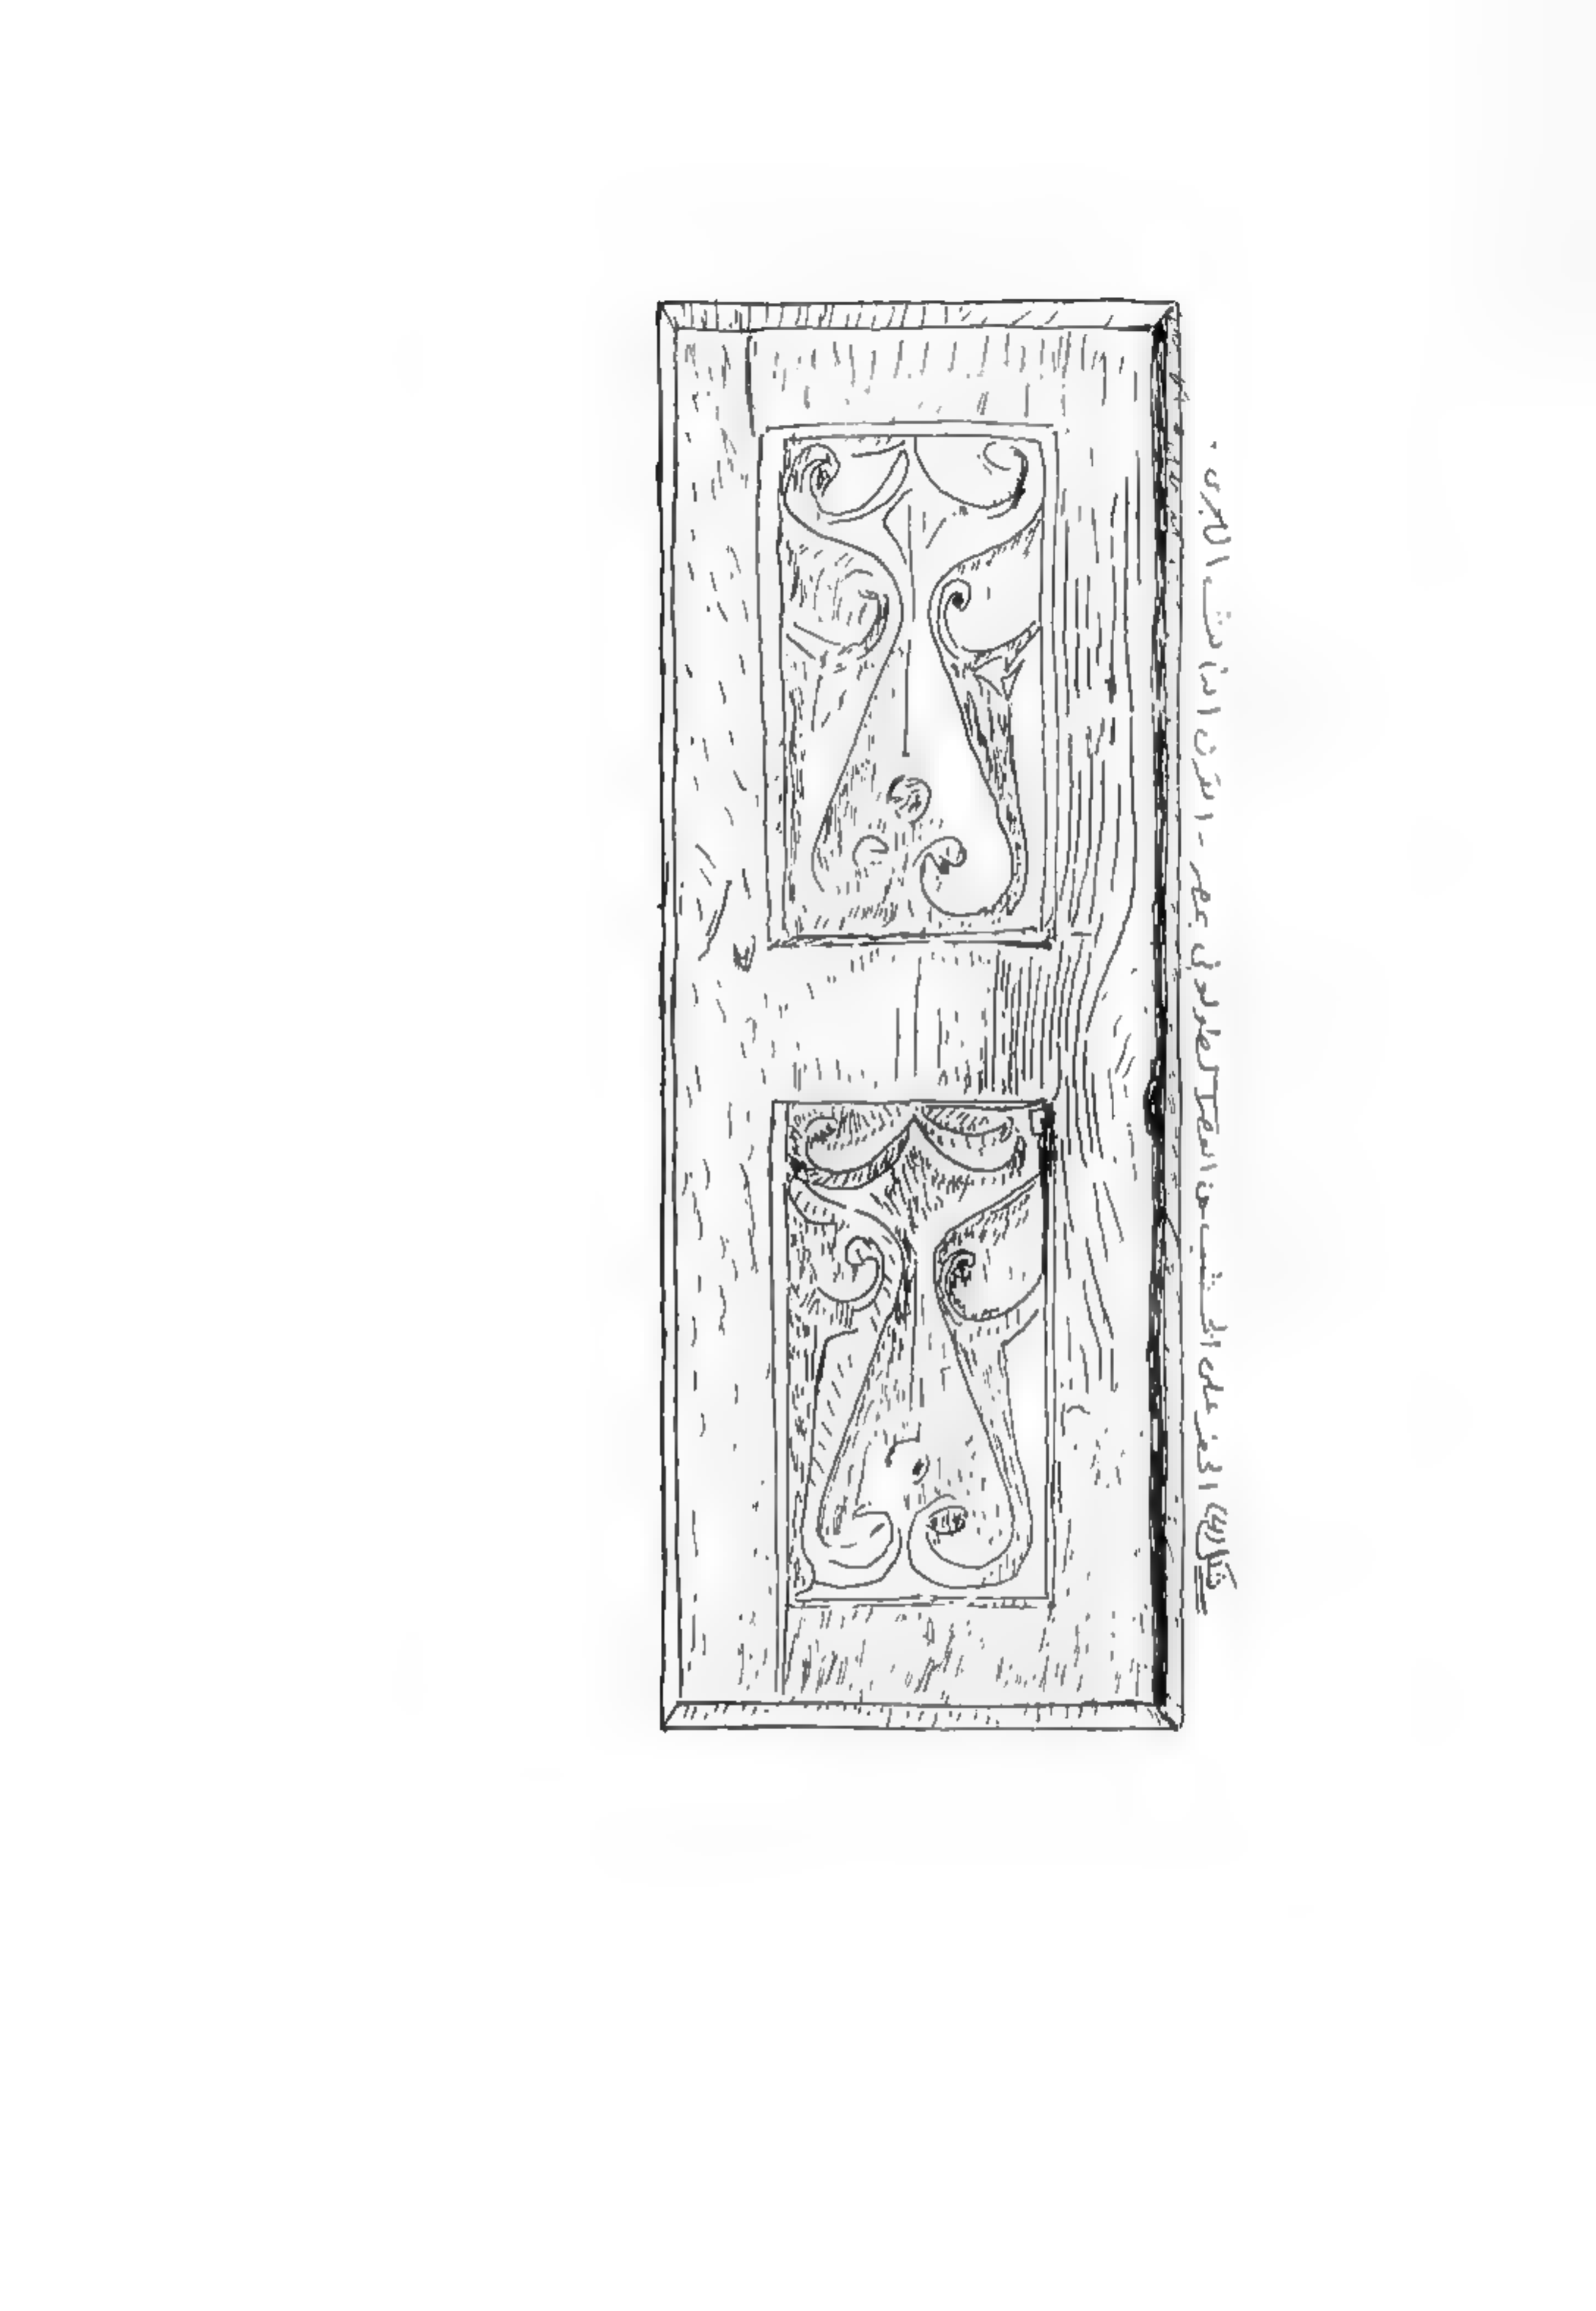 شكل (٤) الحفر على الخشب من العصر الطولونى بمصر - القرن الثالث الهجرى .